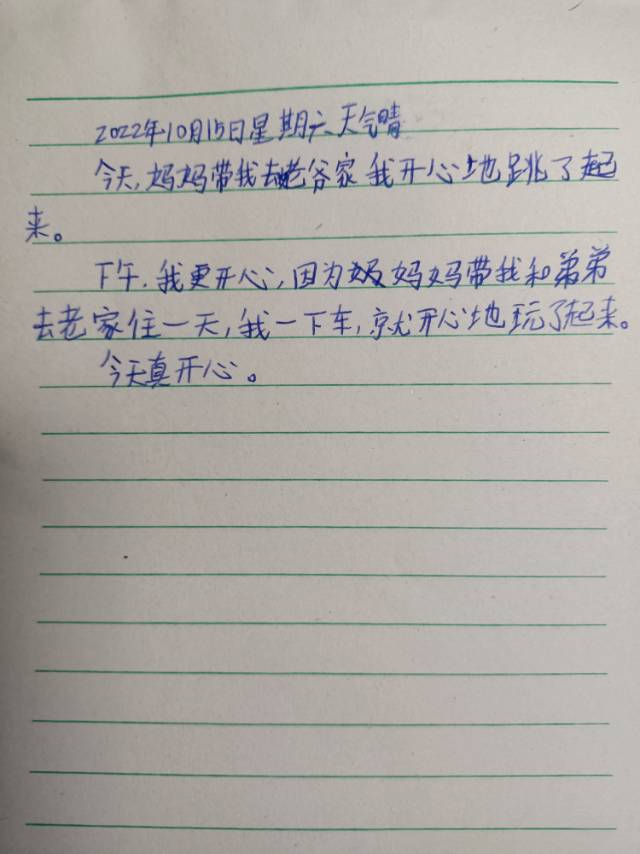 2022年10月15日星期六天气晴
今天,妈妈带我去老爷家我开心地跳了起
来。
下午,我更开心,因为妈妈带我和弟弟
去老家住一天,我一下车,就开心地玩了起来。
今天真开心。